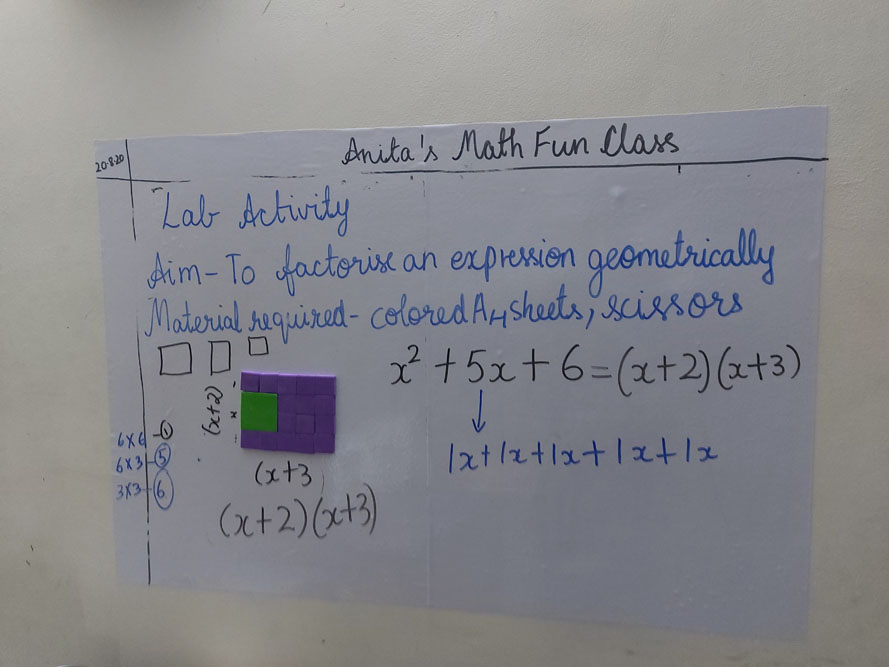 Anita's Math Fun Class
20.8.20
Lab Activity
Aim- To factorise an expression geometrically
Material required- colored A4 sheets, scissors
x² + 5x + 6 = (x+2)(x+3)
1x+1x+1x+1x+1x
(x+2)
x
6x6
6x3-⑤
3x3-⑥
(x+3
(x+2)(x+3)